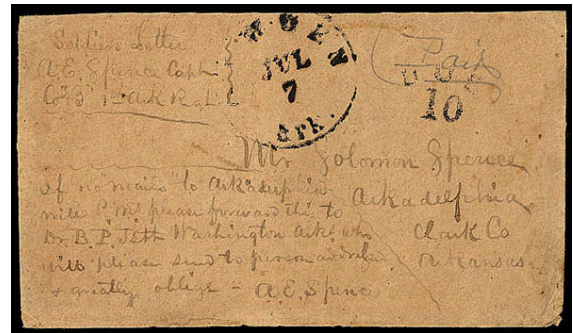 Soldiers Letter
A. E. Spence Capt
Co "B" 1st Ark Regt
JUL
7
Ark.
Paid
10
Mr Solomon Spence
Arkadelphia
Clark Co
Arkansas
If no mails to Arkadelphia
will P.M. please forward this to
Dr. B. P. Jett Washington Ark who
will please send to person addressed
& greatly oblige - A. E. Spence